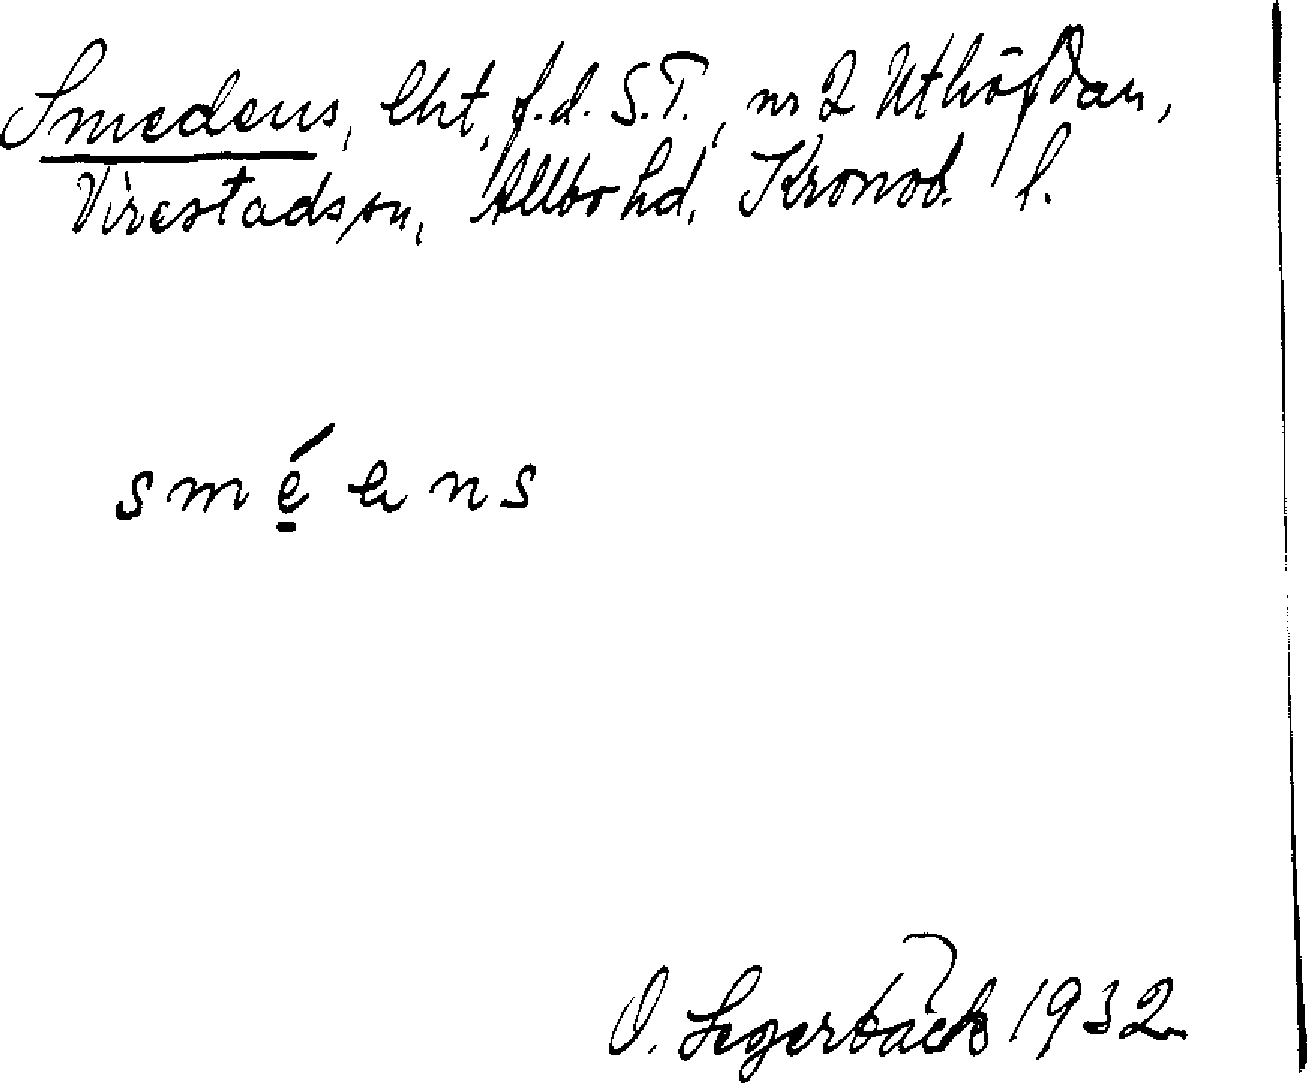 Smedens, lht, f.d. S.T., nr 2 Uthöfdan,
Virestads sn, Allbo hd, Kronob. l.
smé ens
O. Segerbäck 1932